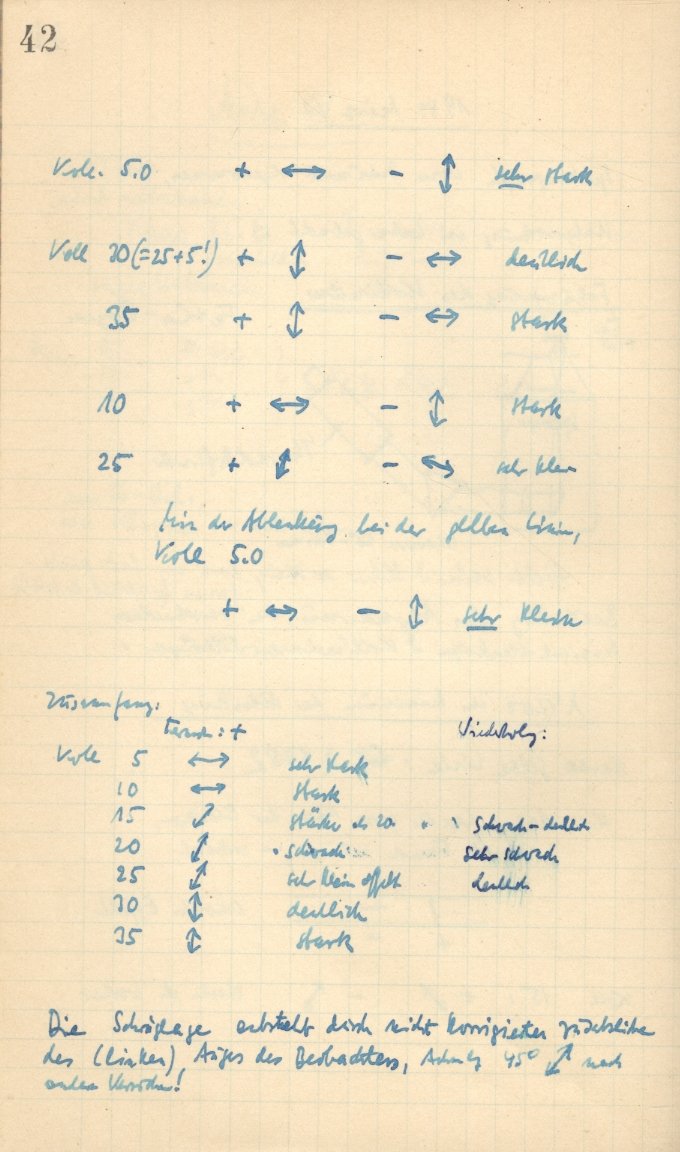 42
Koll. 5.0 + ↔ − ↕ sehr stark
Koll 30 (=25+5!) + ↕ − ↔ deutlich
35 + ↕ − ↔ stark
10 + ↔ − ↕ stark
25 + ⤢ − ⤡ sehr klein
der Ablenkung bei der gelben Linie,
Koll 5.0
+ ↔ − ↕ sehr klein
+ Wiederholg:
Koll 5 ↔ sehr stark
10 ↔ stark
15 ⤢ stärker als 20 schwach-deutlich
20 ⤢ schwach sehr schwach
25 ⤢ sehr klein deutlich
30 ↕ deutlich
35 ↕ stark
Die Schräglage entsteht durch nicht korrigierten
des (linken) Auges des Beobachters, 45° ⤢ nach